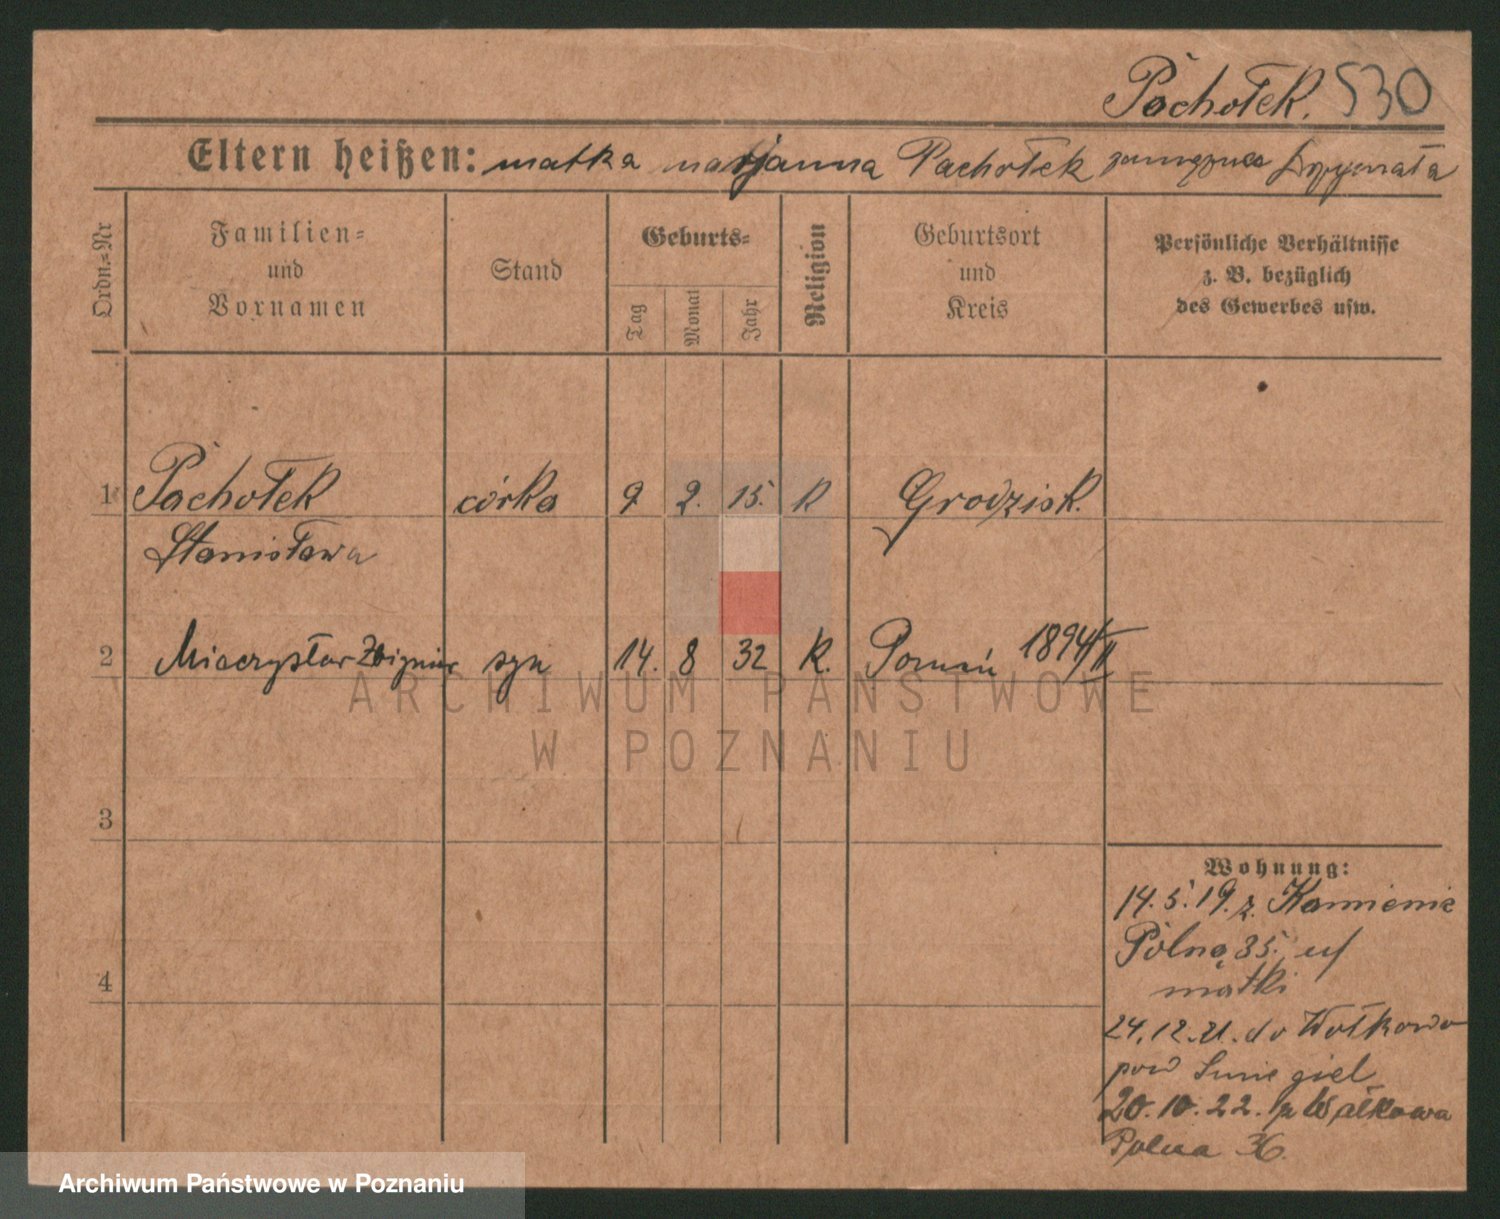 Pachołek. 530
Eltern heißen: matka marjanna Pachołek zamężna
Ordn.-Nr
Familien-
und
Vornamen
Stand
Geburts-
Tag
Monat
Jahr
Religion
Geburtsort
und
Kreis
Persönliche Verhältnisse
z. B. bezüglich
des Gewerbes usw.
1 Pachołek córka 9 2. 15. K Grodzisk.
Stanisława
2 Mieczysław Zbigniew syn 14. 8 32 K. Poznań 1894/II
3
4
Wohnung:
14.5.19. z. Kamienic
Polna 35. u/
matki
24.12.21. do Wołkowo
pow Smigiel
20.10.22. z Wałkowa
Polna 36.
ARCHIWUM PAŃSTWOWE
W POZNANIU
Archiwum Państwowe w Poznaniu